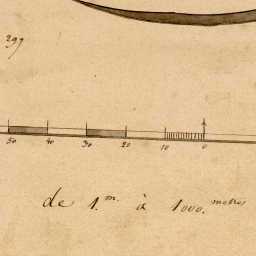 299
50 40 30 20 10 0
de 1.m. à 1000. metres